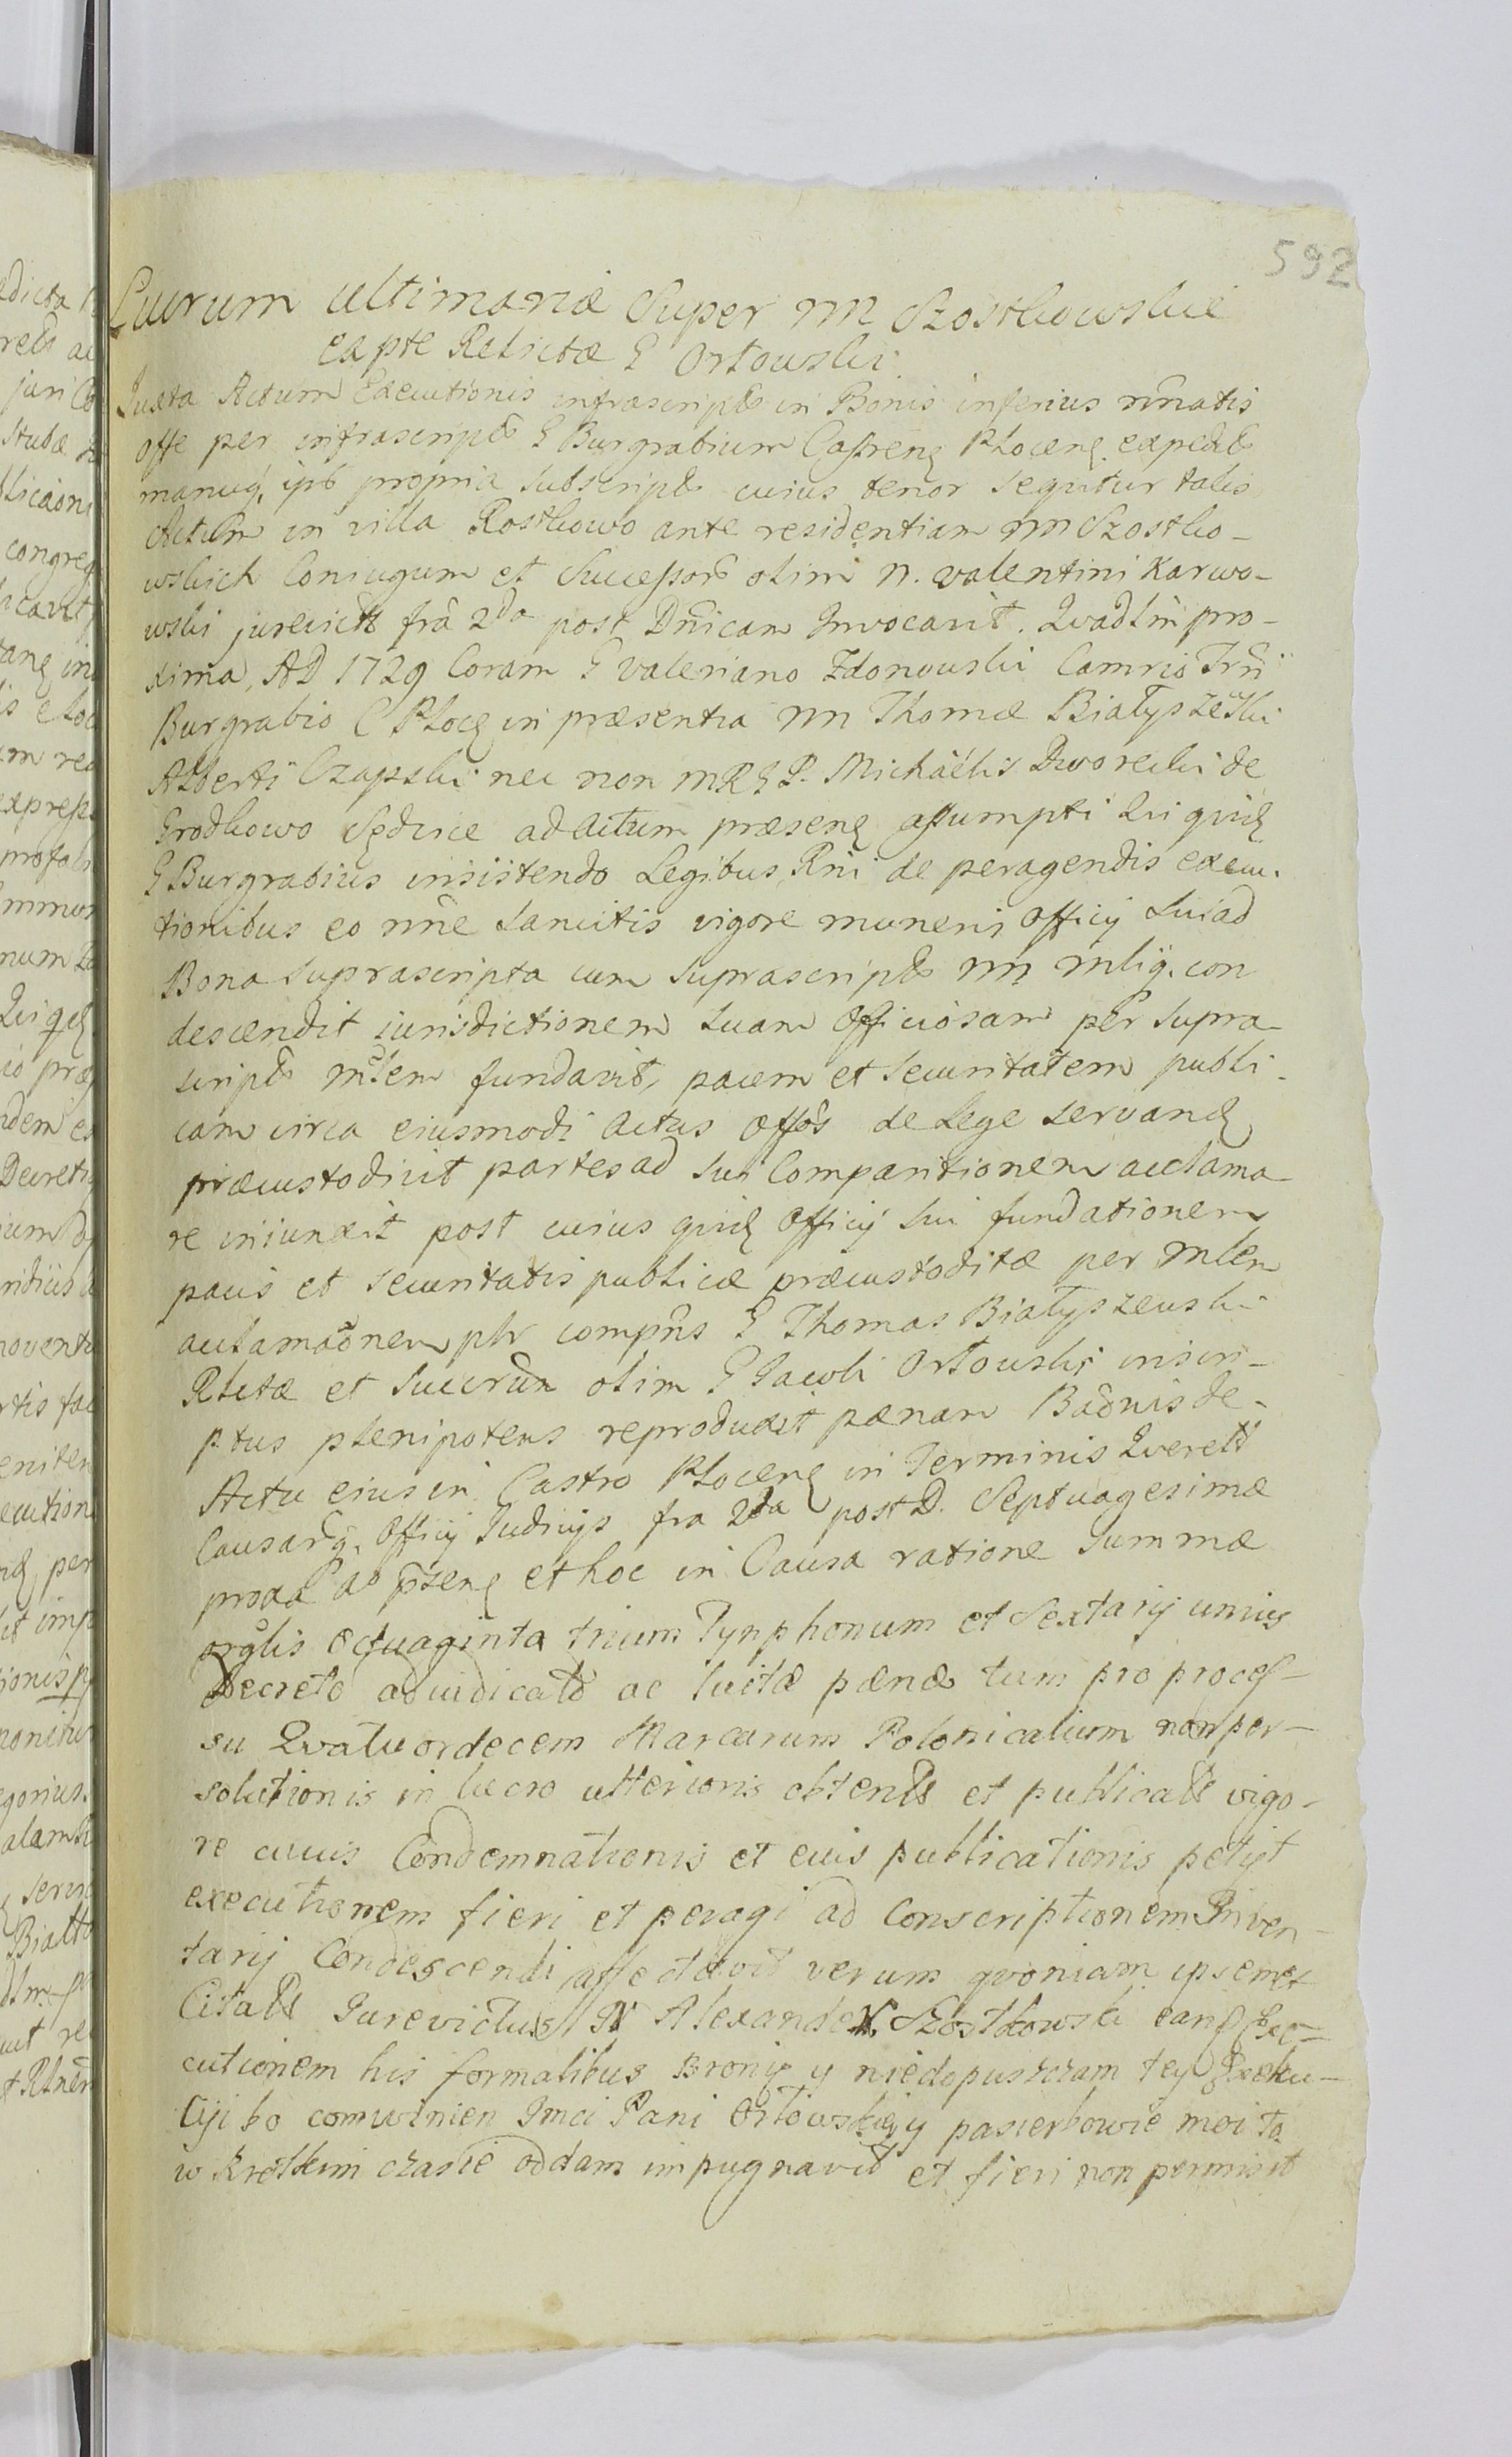 592
Lucrum ultimariæ Super NN Szostkowskie
ex pte Relictæ G Orłowski
Juxta Actum Executionis infrascript in Bonis inferius nnatis
offe per infrascript G Burgrabium Castren Plocen expedit
manuq ips propria subscript cuius tenor sequitur talis
Actum in villa Rostkowo ante residentiam NN Szostko-
wskich Coniugum et Successor olim N. Valentini Karwo-
wski jurevict fra 2da post Dnicam Invocavit. Quadlm pro-
xima, AD 1729 Coram G Valeriano Zdonowski Camrio Trn
Burgrabio C Ploc in præsentia NN Thomæ Białyszeski
Alberti Czapski nec non MRGP. Michaëlis Dworecki de
Grodkowo Sędice ad Actum præsen assumpti Qui quid
G Burgrabius insistendo Legibus Rni de peragendis execu-
tionibus eo nne sancitis vigore muneris officij sui ad
Bona suprascripta cum suprascript NN Mliq. con
descendit iurisdictionem suam Officiosam per supra
script Mlem fundavit, pacem et securitatem publi-
cam circa eiusmodi actus offos de Lege servand
præcustodivit partes ad sui Comparitionem acclama-
re iniunxit post cuius quid officij sui fundationem
pacis et securitatis publicæ præcustoditæ per Mlem
acclamaonem plr compns G Thomas Białyszewski
Rlictæ et Succrum olim G Jacobi Orłowski inscri-
ptus plenipotens reproduxit pænam Baonis de-
Actu eius in Castro Plocen in Terminis Querell
Causarq. Officij Judicijs fra 2da post D. Septuagesimæ
proxa Ao præsen et hoc in Causa ratione summæ
orglis octuaginta trium Tynphonum et Sextarij unius
Decreto adiudicato ac luitæ pænæ tum pro proces-
su Quatuordecem Marcarum Polonicalium non per-
solutionis in lucro ulterioris obtent et publicat vigo-
re cuius Condemnationis et eius publicationis petijt
executionem fieri et peragi ad Conscriptionem Inven-
tarij Condescendi affectavit verum quoniam ipsemet
Citatt Jurevictus N Alexander Szostkowski eand Exe-
cutionem his formalibus Bronię y niedopuszczam tey Exeku-
cyi bo comwinien Jmci Pani Orłowskiey pasierbowie moi to
w krotkim czasie oddam impugnavit et fieri non permisit